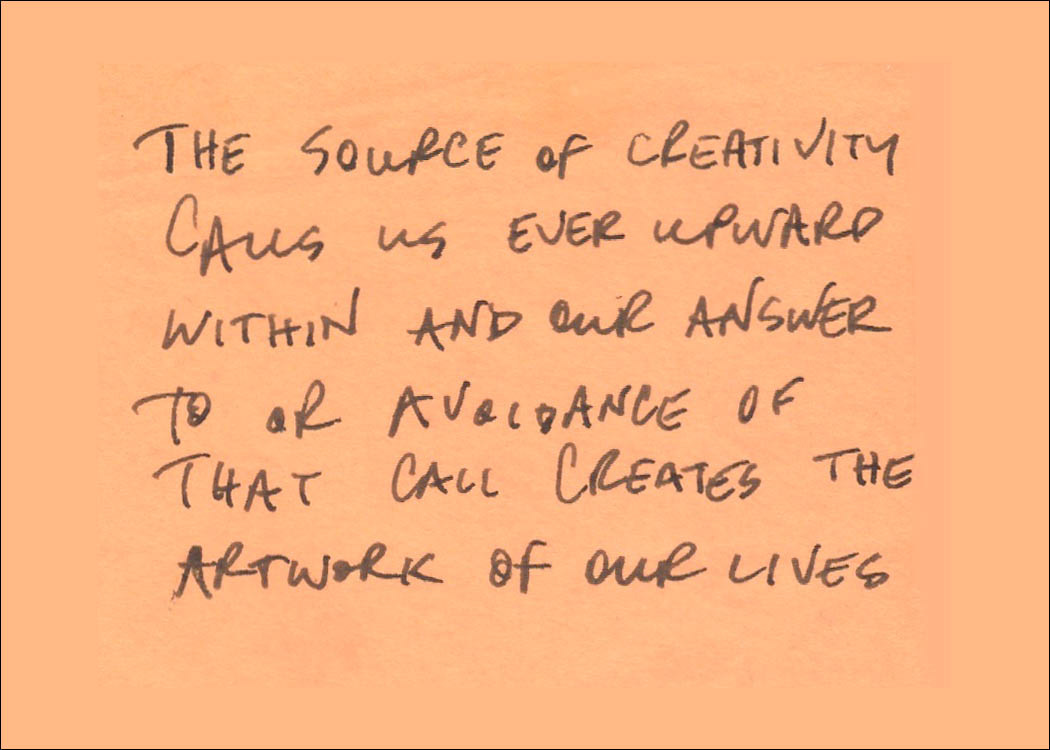 THE SOURCE OF CREATIVITY
CALLS US EVER UPWARD
WITHIN AND OUR ANSWER
TO OR AVOIDANCE OF
THAT CALL CREATES THE
ARTWORK OF OUR LIVES